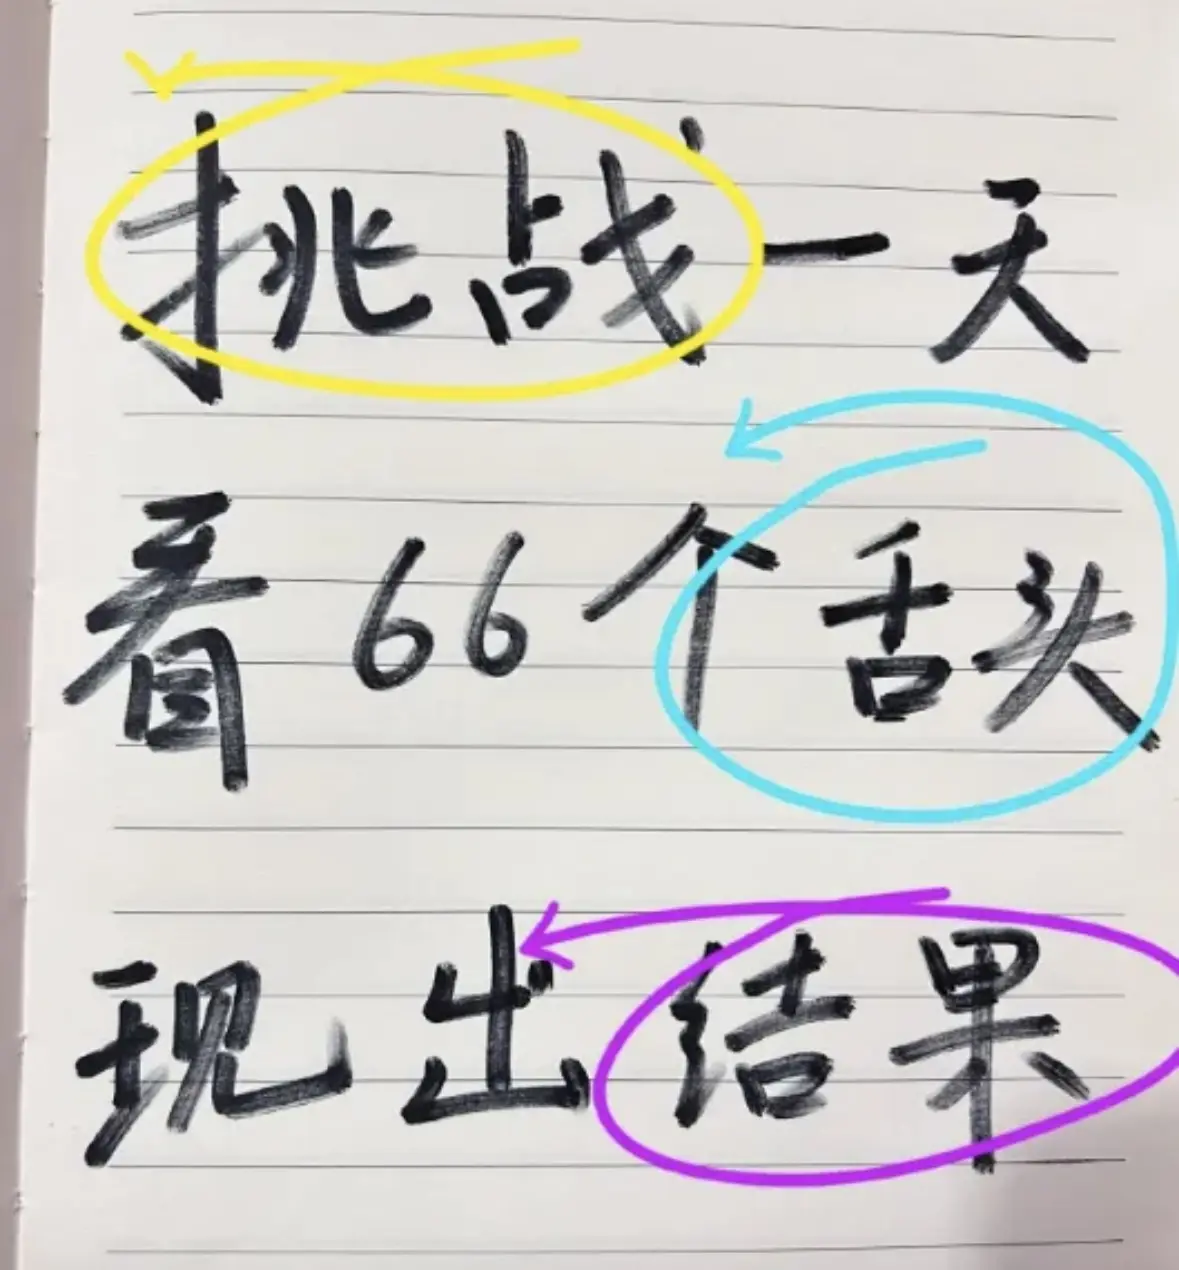 挑战一天
看66个舌头
现出结果